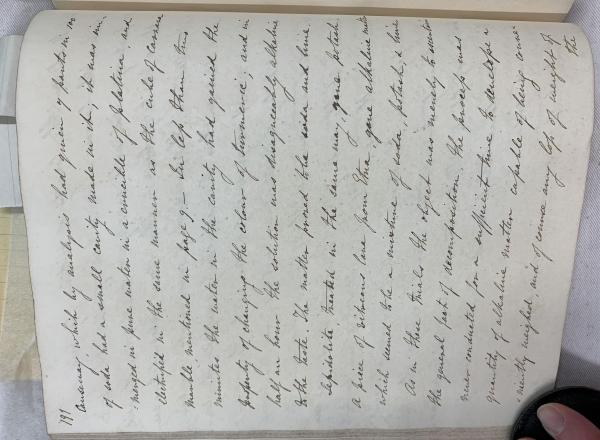 191
Antenmay, which by analysis had given 7 parts in 100
of soda had a small cavity made in it; it was im-
-merged in pure water in a crucible of platina, and
electrified in the same manner as the cube of Carrara
marble mentioned in page 9 — in less than two
minutes the water in the cavity had gained the
property of changing the colour of turmeric; and in
half an hour the solution was disagreeably alkaline
to the taste. The matter proved to be soda and lime.
Lepidolite treated in the same way, gave potash.
A piece of vitreous lava from Etna, gave alkaline matter
which seemed to be a mixture of soda, potash & lime
As in these trials the object was merely to ascertain
the general fact of decomposition, the process was
never conducted for a sufficient time to develope a
quantity of alkaline matter capable of being conve-
-niently weighed, and of course any loss of weight of
the